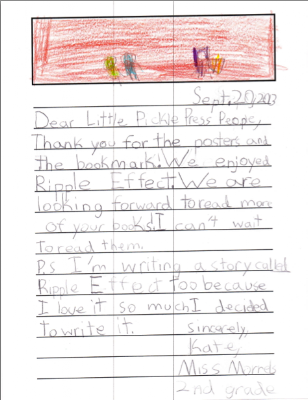 Sept. 20, 2013
Dear Little Pickle Press Peops,
Thank you for the posters and
the bookmark! We enjoyed
Ripple Effect. We are
looking forward to read more
of your books! I can't wait
to read them.
P.s I'm writing a story called
Ripple Effect too because
I love it so much I decided
to write it. Sincerely,
Kate,
Miss
2nd grade